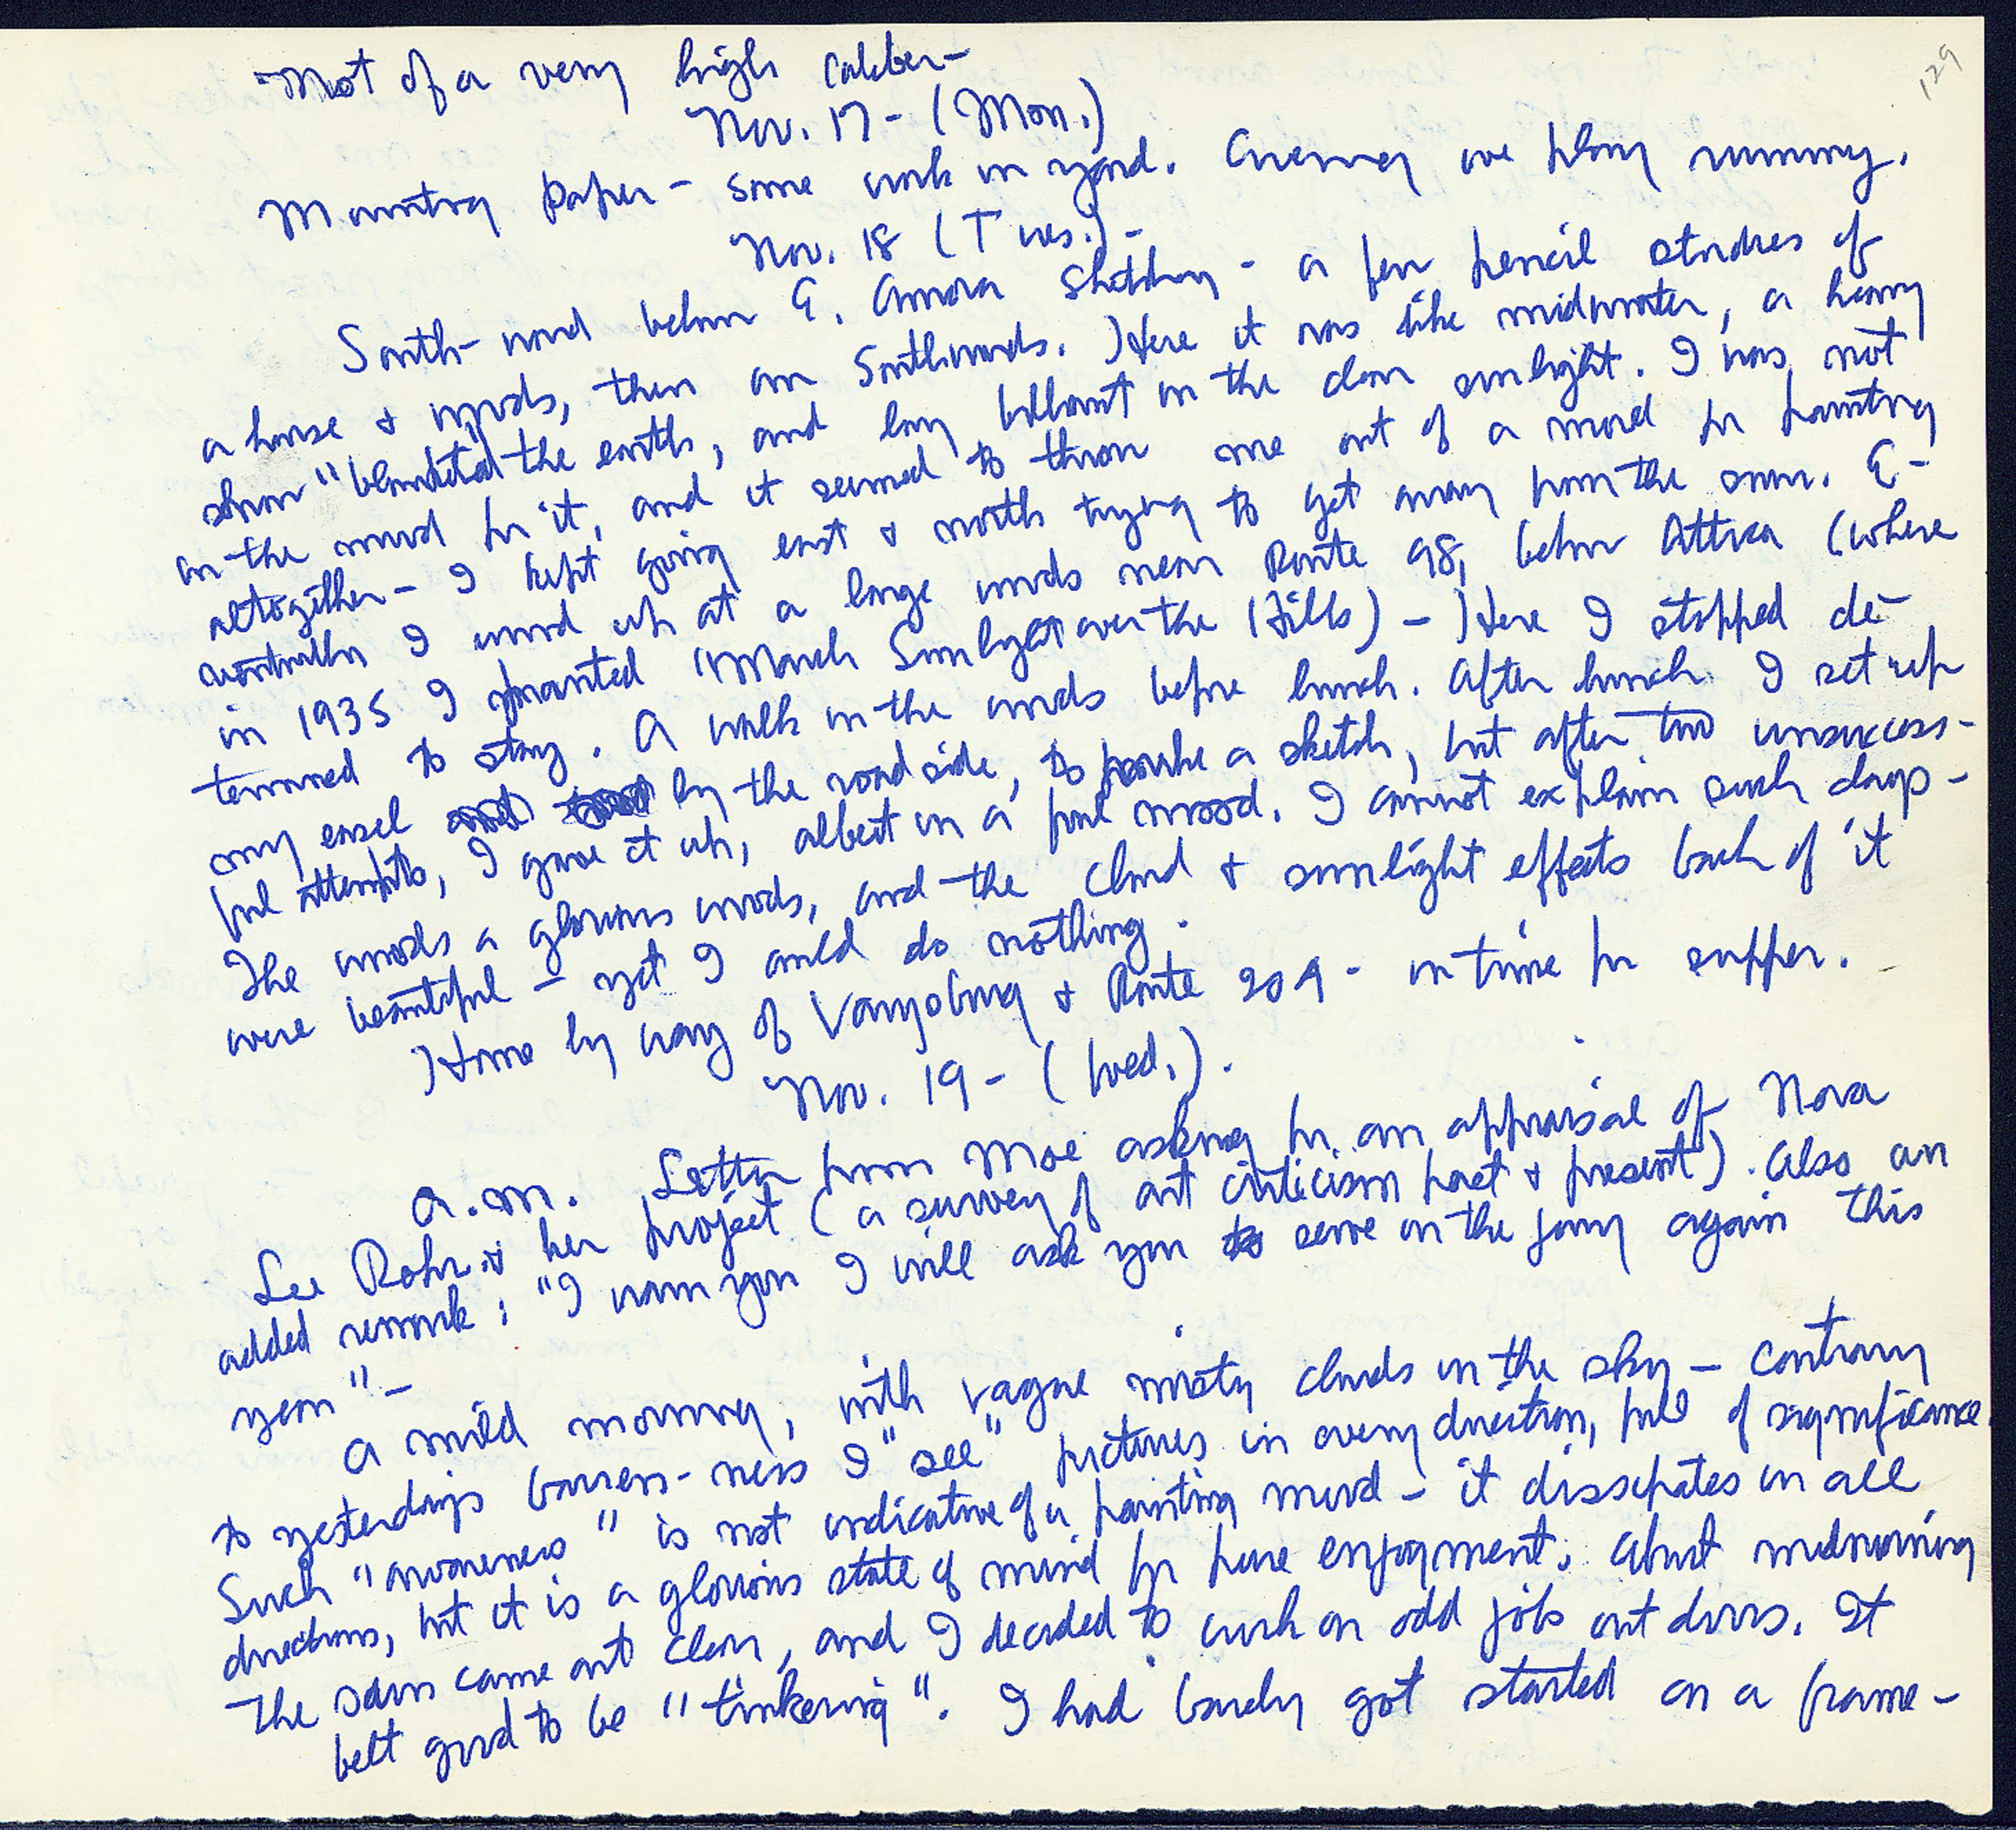 129
Most of a very high caliber—
Nov. 17 - (Mon.)
Mounting paper - some work in yard. Evening we play rummy.
Nov. 18 (Tues.) -
South-ward below E. Aurora Sketching - a few pencil studies of
a house & woods, then on Southwards. Here it was like midwinter, a heavy
snow "blanketed the earth, and lay brilliant in the clear sunlight. I was not
in the mood for it, and it seemed to throw me out of a mood for painting
altogether - I kept going east & north trying to get away from the snow. E-
ventually I wound up at a large woods near Route 98, below Attica (where
in 1935 I painted "March Sunlight over the Hills) - Here I stopped de-
termined to stay. A walk in the woods before lunch. After lunch I set up
my easel by the roadside, to make a sketch, but after two unsuccess-
ful attempts, I gave it up, albeit in a foul mood. I cannot explain such days -
The woods a glorious woods, and the cloud & sunlight effects back of it
were beautiful - yet I could do nothing.
Home by way of Varysburg & Route 20A - in time for supper.
Nov. 19 - (Wed.).
A.M. Letter from Moe asking for an appraisal of Nora
Lee Rohr & her project (a survey of art criticism past & present). Also an
added remark; "I warn you I will ask you to serve on the jury again this
year" -
A mild morning, with vague misty clouds in the sky - contrary
to yesterdays barren-ness I "see" pictures in every direction, full of significance
Such "awareness" is not indicative of a painting mood - it dissipates in all
directions, but it is a glorious state of mind for pure enjoyment. About midmorning
the sun came out clear, and I decided to work on odd jobs outdoors. It
felt good to be "tinkering". I had barely got started on a frame -